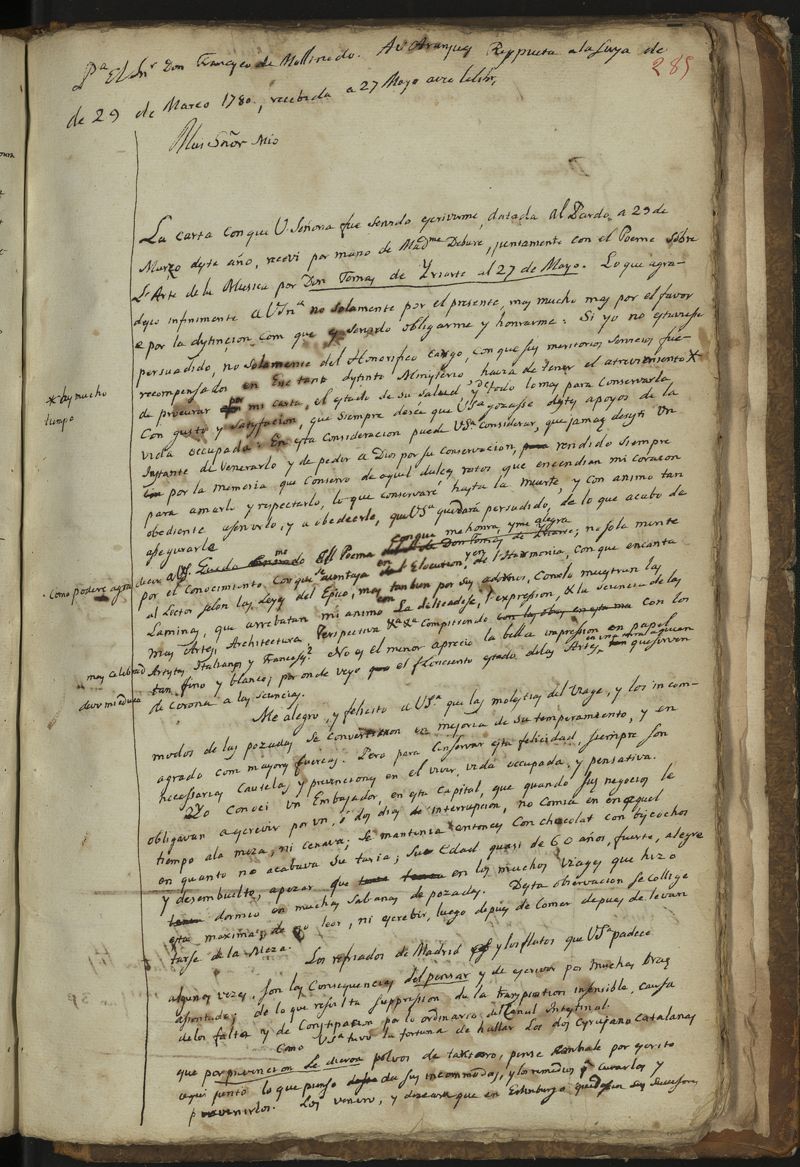 Pa El Snr Don Francisco de Mollinedo. Au Aranjuez Respuesta a la suya de
285
de 29 de Marco 1780, recebida a 27 Mayo
Mui Señor Mio
La carta con que V Señoria fue servido escrivirme, datada al Pardo a 29 de
Marzo deste año, recevi por mano de Madme Debure, juntamente con el Poeme sobre
Le Arte de la Musica por Don Tomas de Yriarte al 27 de Mayo. Lo que agra-
desco infinimente a VSria no solamente por el presente, mas mucho mas por el favor
e por la distincion, com que es servido obligarme y honrarme: Si yo no estuviesse
persuadido, no solamente del Honorifico cargo, con que sus meritorios servicios fue-
recompensados en Ese tant distinto Ministerio havia de tener el atrevimiento X
* hay mucho
tiempo
de procurar por mi carta, el estado de su salud, y todo lo mas para conservarla
Con gusto y satisfacion, que siempre desea que VSa gozasse destes apoyos de la
vida occupada: En esta consideracion puede VSa considerar, que jamas desisti Un
Instante de venerarlo y de pedir a Dios por su conservacion, rendido siempre
por la memoria que conservo de aquel dulces ratos que encendian mi corason
para amarlo y respectarlo, lo que conservaré hasta la muerte, y con animo tan
obediente a servirlo, y a obedecerle, que VSa quedará persuadido, de lo que acabo de
asegurarle
con que me honra, y me alegra
. como podere agra decer a VS. El Poema de Don Tomas de Yriarte; no sola mente
por el conocimiento con que se aventaja en Elocution, y en de l'Harmonia, con que encanta
al Lector selon las Leyes del Epico, mas tanbien por sus adornos, Como lo muestran las
Laminas, que arrebatan mi animo con La delicadese, l'expression, & la sciencia de las
mas Artes, Architectura Perspectiva &a &a Compitiendo con los
mas celebrad
Artistas Italianos y Franceses. No es el menor aprecio la bella impression en papel
tan fino y blanco; por onde veyo el florenciento estado de las Artes, que sirven
de Corona a las sciencias.
Me alegro, y felicito a VSa que las molestias del Viage, y los incom-
modos de las pozadas se convertiron en mejoria de su temperamiento, y en
agrado com mayores fuerças. Pero para Conservar esta felicidad, siempre son
necessarias Cautelas y prevenciones en el viver, vida occupada, y pensativa.
Yo Conoci Un Embajador, en esta Capital, que quando sus negocios le
obligavan a escrivir por un, ó dos dias de interrupcion, no Comia en en aquel
tiempo a la meza, ni cenava; se mantenia entonces Con chocolat con biscochos
en quanto no acabava su taria; Su Edad quasi de 60 años, fuerte, alegre
y desembuelto, apezar que en los muchos Viages que hizo
dormio en muchas sabanas de pozadas. Desta observacion se collige
esta maxima, de no leer, ni escrebir, luego depues de Comer depues de levan
tarse de la Meza.
Los resfriados de Madrid y los flatos que VSa padece
algunas vezes, son las Consequencias del pensar y de escrivir por muchas horas
asentado; de lo que resulta suppression de la transpiration insensible, causa
de los flatos y de Constipacion por lo ordinario del Canal Intestinal.
Como VSa tuvo la fortuna de hallar Los dos Cyrujano Catalanes
que por prevencion Le dieron polvos de tartaro, pense Embiale por escrito
aqui junto lo que pienso de sus incommodos, y los remedios y curarlos y
prevenirlos. Los venero, y deseara que en Edenburgo sus sucessores,